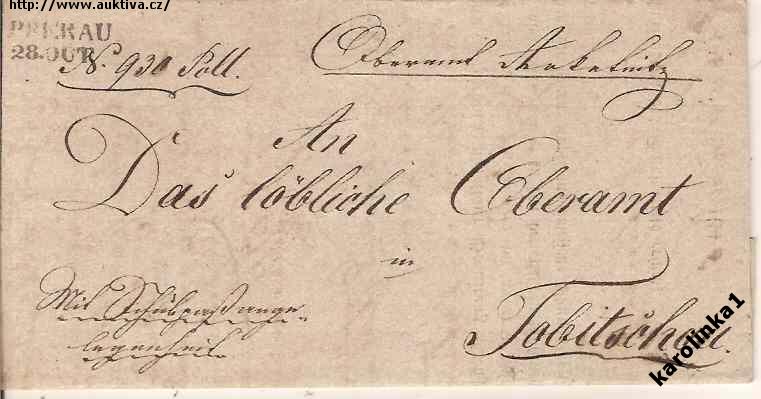 http://www.auktiva.cz/
PRERAU
28. OCT
N. 930 Poll.
Oberamt
An
Das löbliche Oberamt
in
Mit Schubpaßange
legenheit
Tobitschau
karolinka1